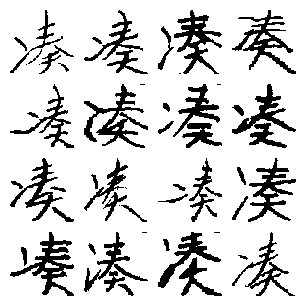 凑凑凑凑
凑凑凑凑
凑凑凑凑
凑凑凑凑